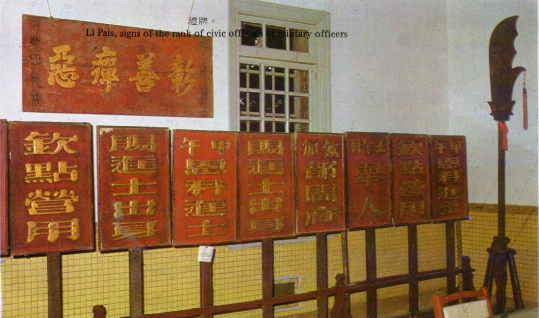 禮牌。
Li Pais, signs of the rank of civic officers or military officers
彰善癉惡
欽點營用
賜進士出身
甲午恩科進士
賜進士出身
欽加都閫府
舉人
欽點營用
甲午恩科進士